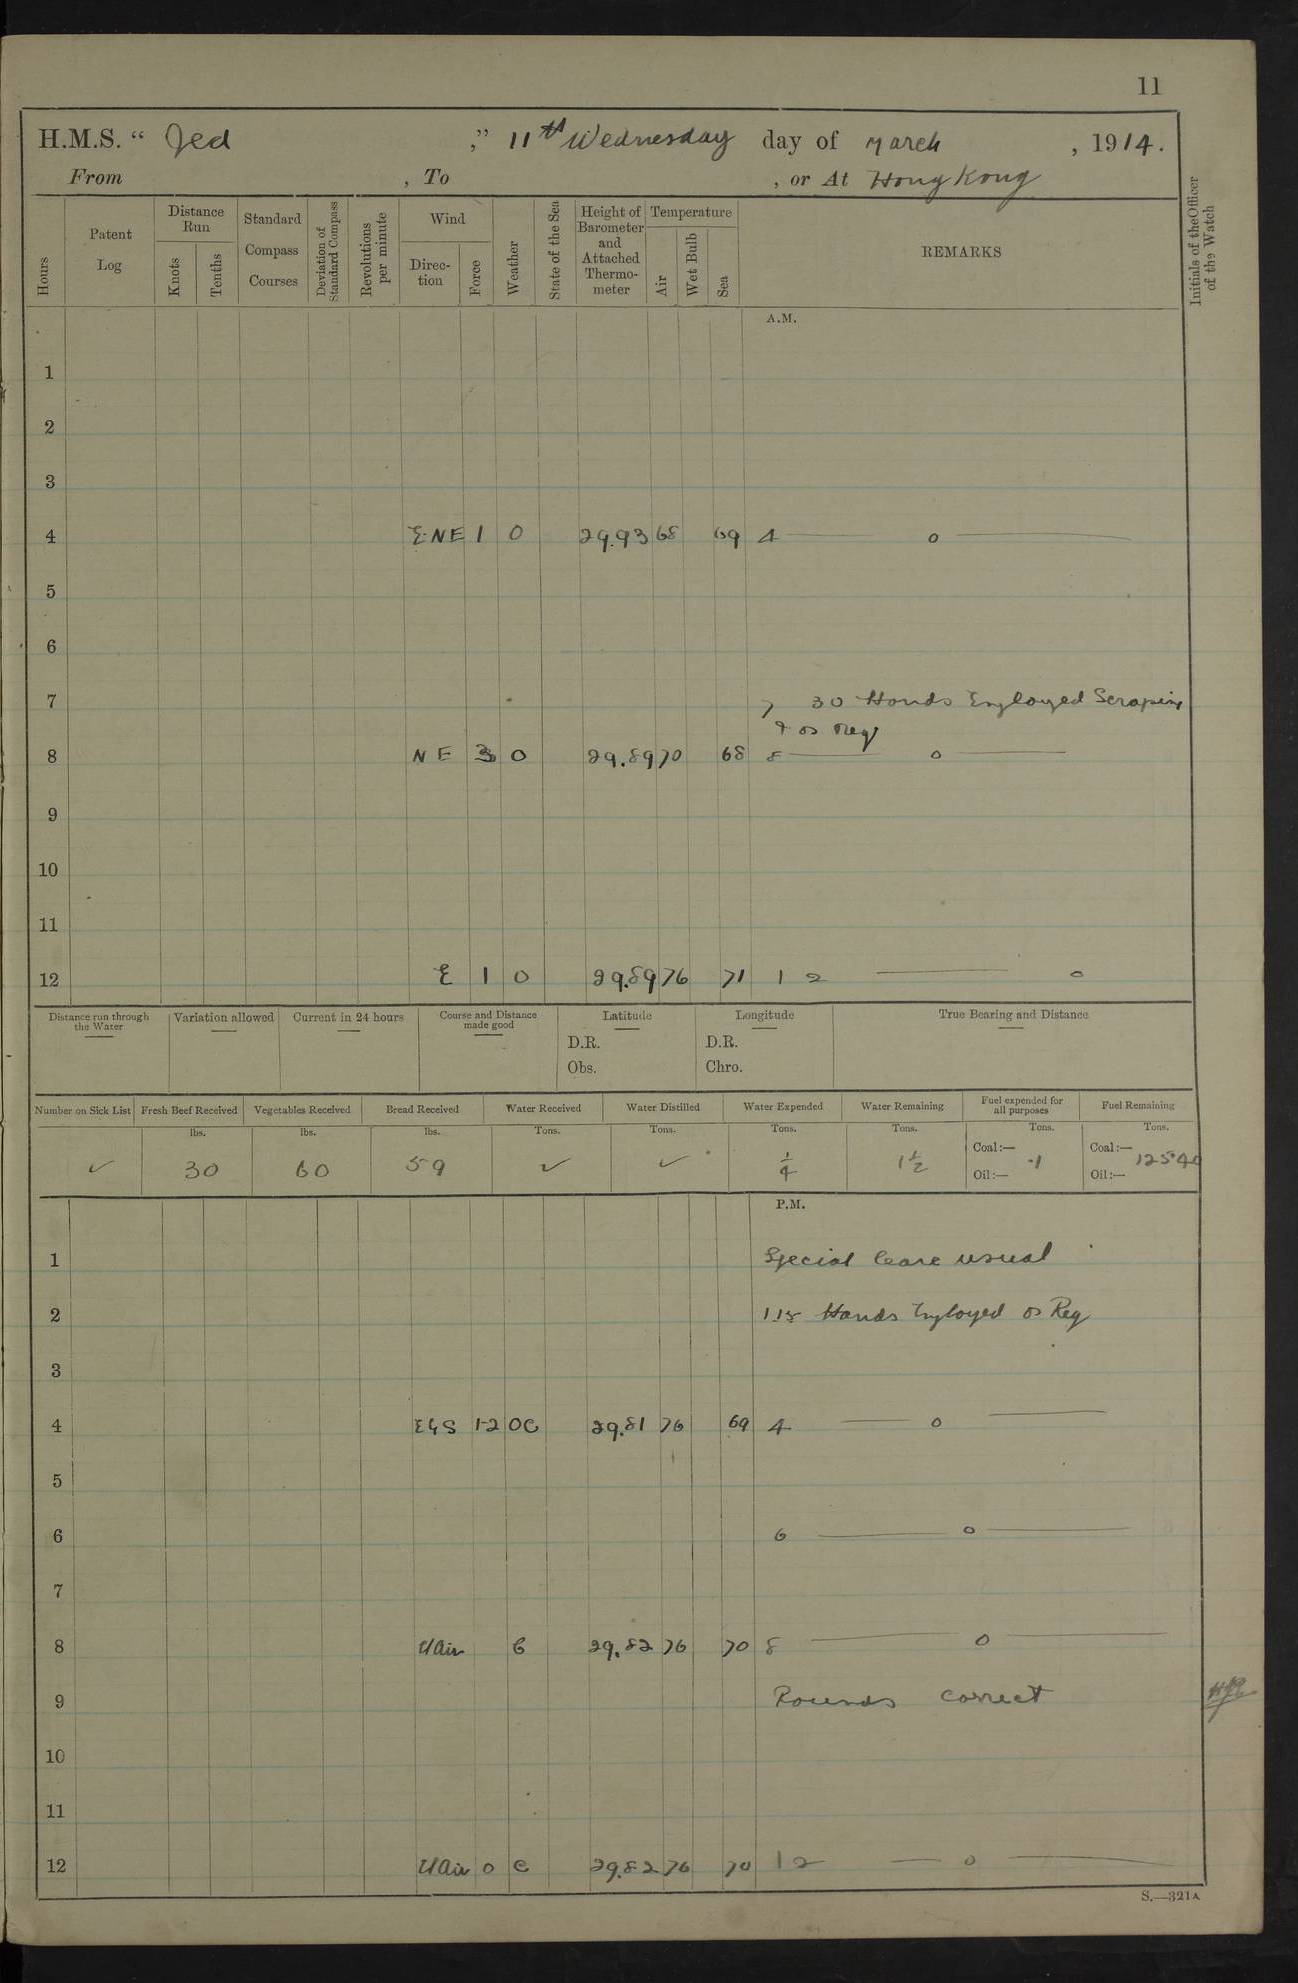 11
H.M.S. “ Jed ,” 11th Wednesday day of March , 1914.
From , To , or At Hong Kong
Hours
Patent Log
Distance Run
Knots
Tenths
Standard Compass Courses
Deviation of Standard Compass
Revolutions per minute
Wind
Direction
Force
Weather
State of the Sea
Height of Barometer and Attached Thermometer
Temperature
Air
Wet Bulb
Sea
REMARKS
Initials of the Officer of the Watch
A.M.
1
2
3
4 ENE 1 0 29.93 68 69 4 — o —
5
6
7 7 30 Hands Employed Scraping
& as req
8 NE 3 0 29.89 70 68 8 — o —
9
10
11
12 E 1 0 29.89 76 71 12 — o
Distance run through the Water
Variation allowed
Current in 24 hours
Course and Distance made good
Latitude
D.R.
Obs.
Longitude
D.R.
Chro.
True Bearing and Distance
Number on Sick List Fresh Beef Received Vegetables Received Bread Received Water Received Water Distilled Water Expended Water Remaining Fuel expended for all purposes Fuel Remaining
lbs. lbs. lbs. Tons. Tons. Tons. Tons. Tons. Tons.
✓ 30 60 59 ✓ ✓ 1/4 1 1/2 Coal:— ·1 Coal:— 125·40
Oil:— Oil:—
P.M.
1 Special leave usual
2 1.15 Hands Employed as Req
3
4 E4S 1-2 OC 29.81 76 69 4 — o —
5
6 6 — o —
7
8 Uair C 29.82 76 70 8 — o —
9 Rounds correct
10
11
12 Uair 0 C 29.82 76 70 12 — o —
S.—321A